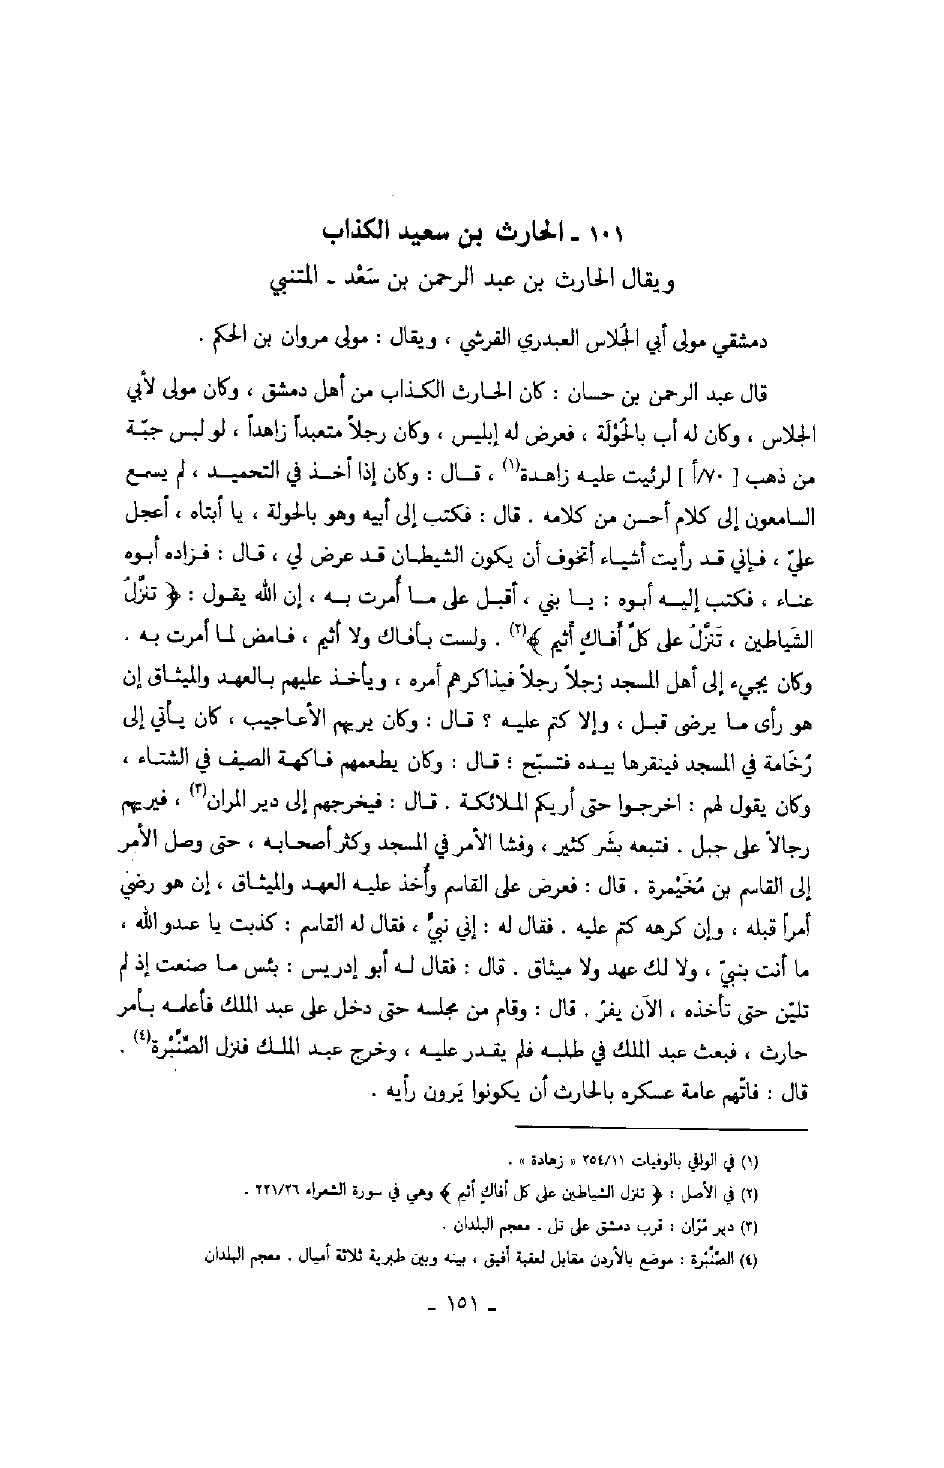 ١٠١ ـ الحارث بن سعيد الكذاب
ويقال الحارث بن عبد الرحمن بن سَعْد ـ المتنبي
دمشقي مولى أبي الجُلاس العبدري القرشي ، ويقال : مولى مروان بن الحكم .
قال عبد الرحمن بن حسان : كان الحارث الكذاب من أهل دمشق ، وكان مولى لأبي
الجلاس ، وكان له أب بالحُوْلَة ، فعرض له إبليس ، وكان رجلاً متعبداً زاهداً ، لو لبس جبّة
من ذهب [ ٧٠/أ ] لرئيت عليه زاهدة(١) ، قال : وكان إذا أخذ في التحميد ، لم يسمع
السامعون إلى كلام أحسن من كلامه . قال : فكتب إلى أبيه وهو بالحولة ، يا أبتاه ، أعجل
عليّ ، فإني قد رأيت أشياء أتخوف أن يكون الشيطان قد عرض لي ، قال : فزاده أبوه
عناء ، فكتب إليه أبوه : يا بني ، أقبل على ما أُمرت به ، إن الله يقول : ﴿ تنزَّلُ
الشَياطين ، تَنَزَّلُ على كلِّ أَفاكٍ أثيم ﴾(٢) . ولست بأفاك ولا أثيم ، فامض لما أمرت به .
وكان يجيء إلى أهل المسجد رَجلاً رجلاً فيذاكرهم أمره ، ويأخذ عليهم بالعهد والميثاق إن
هو رأى ما يرضى قبل ، وإلا كتم عليه ؟ قال : وكان يريهم الأعاجيب ، كان يأتي إلى
رُخَامة في المسجد فينقرها بيده فتسبّح ؛ قال : وكان يطعمهم فاكهة الصيف في الشتاء ،
وكان يقول لهم : اخرجوا حتى أريكم الملائكة . قال : فيخرجهم إلى دير المران(٣) ، فيريهم
رجالاً على جبل . فتبعه بشر كثير ، وفشا الأمر في المسجد وكثر أصحابه ، حتى وصل الأمر
إلى القاسم بن مُخَيْمرة . قال : فعرض على القاسم وأُخذ عليه العهد والميثاق ، إن هو رضيَ
أمراً قبله ، وإن كرهه كتم عليه . فقال له : إني نبيٌّ ، فقال له القاسم : كذبت يا عدو الله ،
ما أنت بنبيّ ، ولا لك عهد ولا ميثاق . قال : فقال له أبو إدريس : بئس ما صنعت إذ لم
تليّن حتى تأخذه ، الآن يفرّ . قال : وقام من مجلسه حتى دخل على عبد الملك فأعلمه بأمر
حارث ، فبعث عبد الملك في طلبه فلم يقدر عليه ، وخرج عبد الملك فنزل الصِّنَّبْرة(٤) .
قال : فاتّهم عامة عسكره بالحارث أن يكونوا يَرون رأيه .
(١) في الوافي بالوفيات ٢٥٤/١١ « زهادة » .
(٢) في الأصل : ﴿ تنزل الشياطين على كل أفاكٍ أثيم ﴾ وهي في سورة الشعراء ٢٢١/٢٦ .
(٣) دير مُرّان : قرب دمشق على تل . معجم البلدان .
(٤) الصِّنَّبْرة : موضع بالأردن مقابل لعقبة أفيق ، بينه وبين طبرية ثلاثة أميال . معجم البلدان
ـ ١٥١ ـ